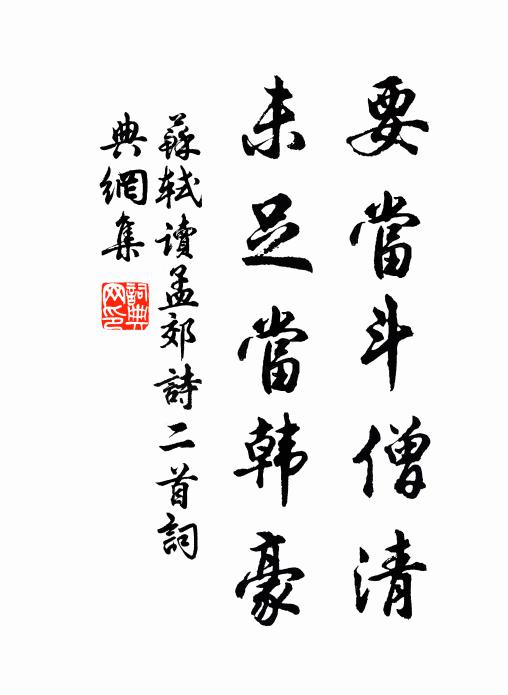 要當斗僧清
未足當韩豪
蘇軾读孟郊詩二首詞
典網集
詞典网印